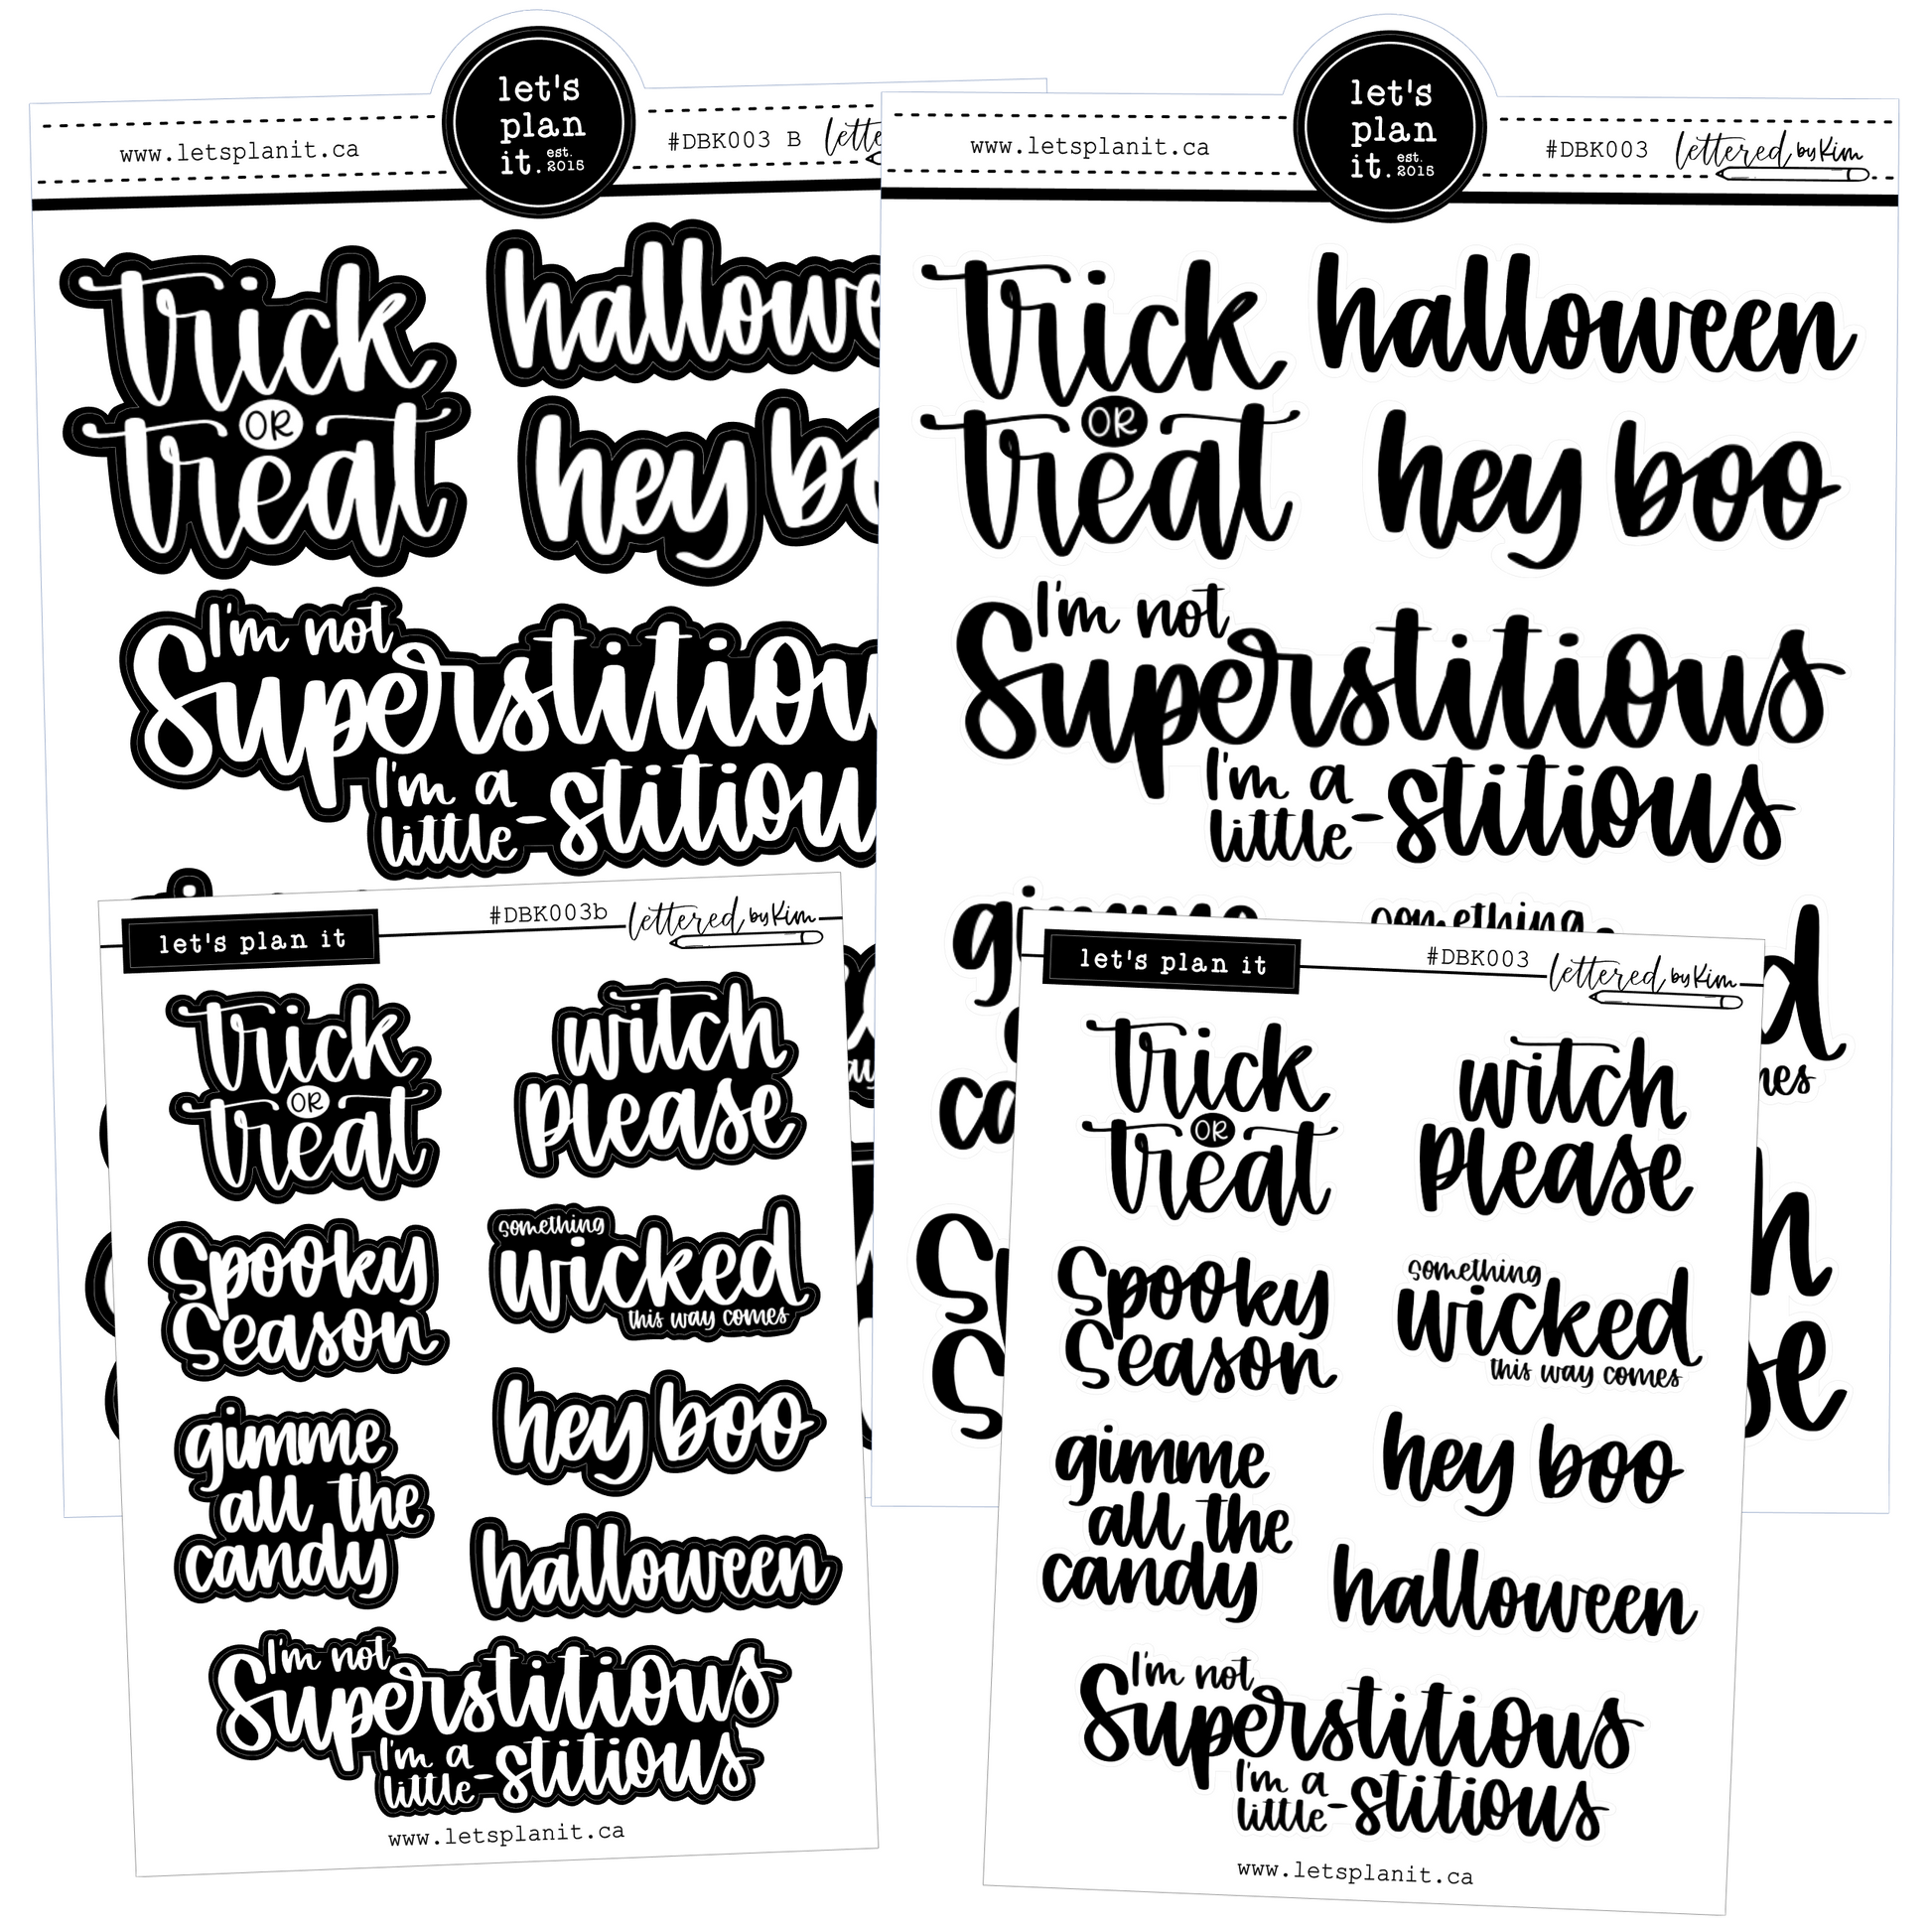 let's
plan
it. est. 2015
www.letsplanit.ca
#DBK003 B
trick
OR
treat
hey
I'm not
I'm a
little-
let's
plan
it. est. 2015
www.letsplanit.ca
#DBK003
lettered by Kim
trick
OR
treat
halloween
hey boo
I'm not
Superstitious
I'm a
little-stitious
something
let's plan it
#DBK003b
lettered by Kim
trick
OR
treat
witch
please
Spooky
Season
something
wicked
this way comes
gimme
all the
candy
hey boo
halloween
I'm not
Superstitious
I'm a
little-stitious
www.letsplanit.ca
let's plan it
#DBK003
lettered by Kim
trick
OR
treat
witch
please
Spooky
Season
something
wicked
this way comes
gimme
all the
candy
hey boo
halloween
I'm not
Superstitious
I'm a
little-stitious
www.letsplanit.ca